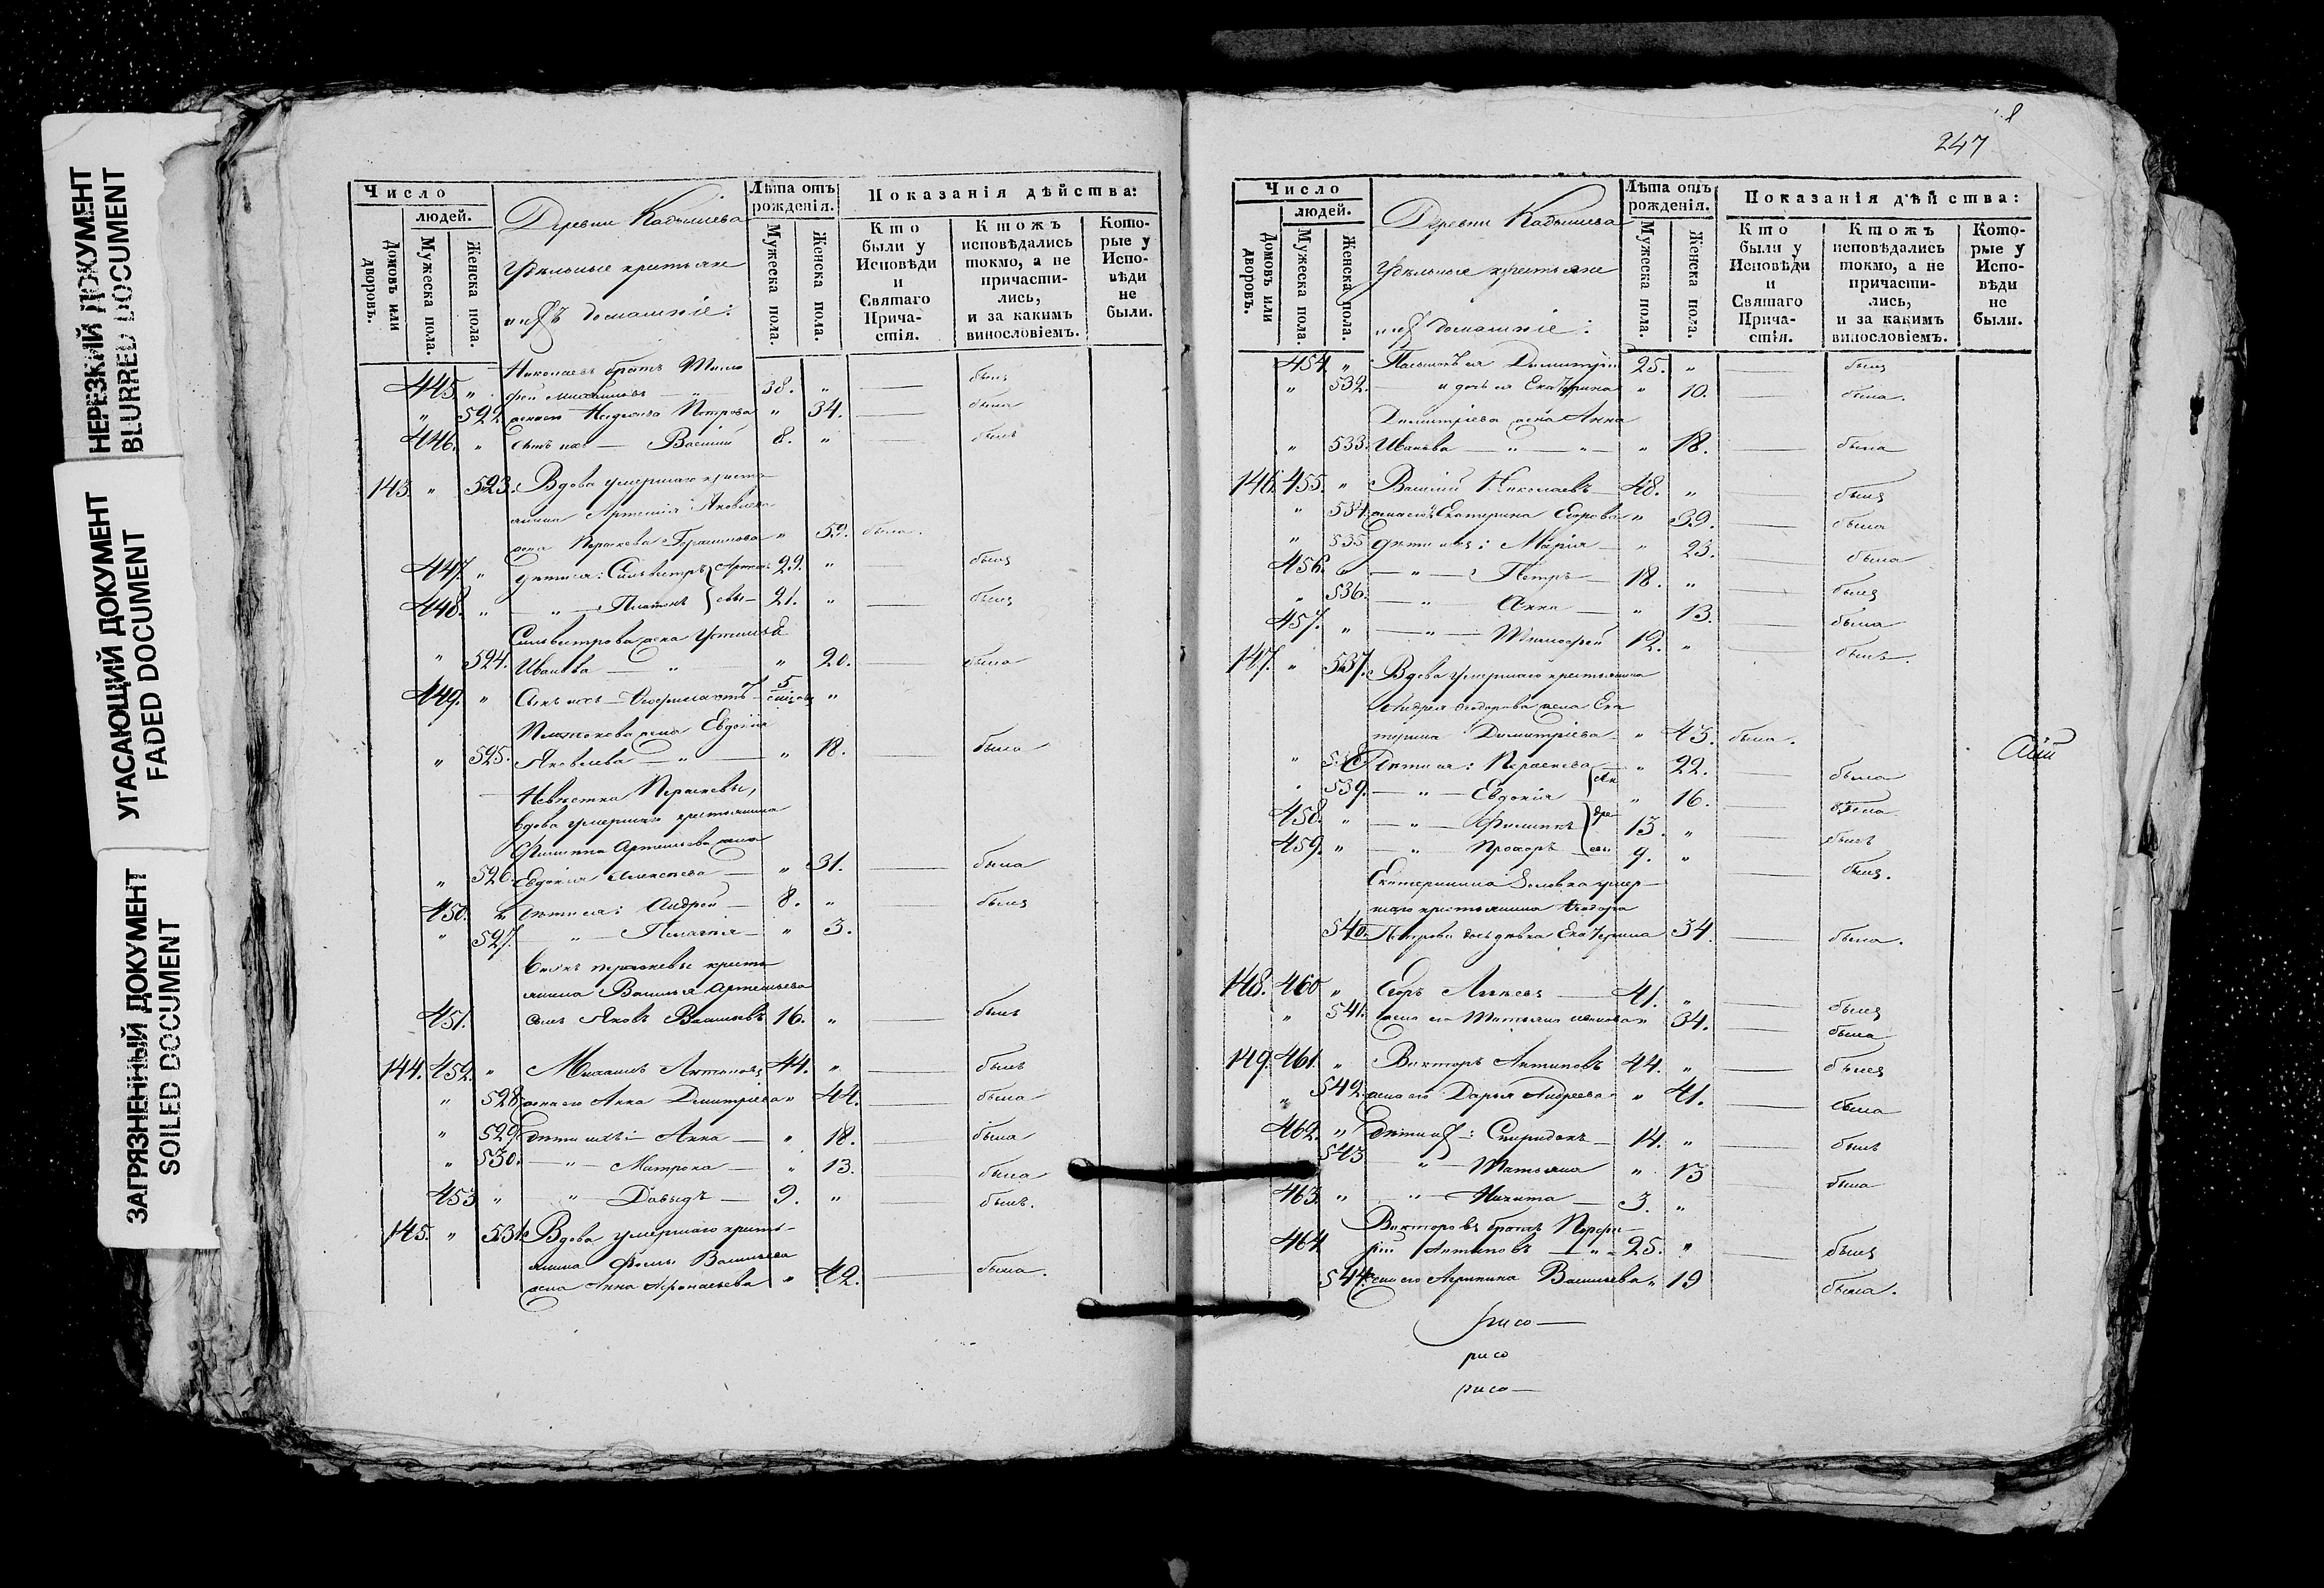 НЕРЕЗКИЙ ДОКУМЕНТ
BLURRED DOCUMENT
УГАСАЮЩИЙ ДОКУМЕНТ
FADED DOCUMENT
ЗАГРЯЗНЕННЫЙ ДОКУМЕНТ
SOILED DOCUMENT
Число
людей.
Домовъ или дворовъ.
Мужеска пола.
Женска пола.
Деревни Кадышева
Удѣльные крестьяне
и ихъ домашніе:
Лѣта отъ рожденія.
Мужеска пола.
Женска пола.
Показанія дѣйства:
Кто были у Исповѣди и Святаго Прича-стія.
Ктожъ исповѣдались токмо, а не причасти-лись, и за какимъ винословіемъ.
Кото-рые у Испо-вѣди не были.
Николаевъ братъ Тимо
445. " фей 38. " былъ
" 522 Петрова " 34. была
446. " сынъ ихъ — Василій 8. " былъ
143. " 523. Вдова умершаго кресть
янина Артемія Яковлева
жена Парасковья Герасимова " 59. была.
447. " дѣти ея: Сильвестръ 29. " былъ
448. " — " — Платонъ 21. " былъ
Сильвестрова жена Устинья
" 524. Иванова — " — " 20. была
449. " Сынъ ихъ — 5 "
Платонова жена Евдокія
" 525. Яковлева — " — " 18. была
Невѣстка Парасковьи,
вдова умершаго крестьянина
Филиппа Артемьева жена
" 526. Евдокія Алексѣева — " 31. была
450. " дѣти ея: Андрей — 8. " былъ
" 527. — " — Пелагія — " 3.
янина Василья Артемьева
451. сынъ Яковъ Васильевъ 16. " былъ
144. 452. " Михаилъ Антиповъ 44. " былъ
" 528. жена его Анна Дмитріева " 44. была
" 529. Дѣти ихъ: Анна — " 18. была
" 530. — " — Матрона — " 13. была
453 " — " — Давыдъ — 9. " былъ.
145. " 531. Вдова умершаго кресть-
янина Ѳомы Васильева
жена Анна Афонасьева " 42. была.
247
Число
людей.
Домовъ или дворовъ.
Мужеска пола.
Женска пола.
Деревни Кадышева
Удѣльные крестьяне
и ихъ домашніе:
Лѣта отъ рожденія.
Мужеска пола.
Женска пола.
Показанія дѣйства:
Кто были у Исповѣди и Святаго Прича-стія.
Ктожъ исповѣдались токмо, а не причасти-лись, и за какимъ винословіемъ.
Кото-рые у Испо-вѣди не были.
454. " Пасынокъ ея Димитрій 25. " былъ
" 532. и дочь ея Екатерина " 10. была.
Димитріева жена Анна
" 533. Иванова — " — " — " 18. была
146. 455. " Василій Николаевъ 48. " былъ
" 534. жена его Екатерина Егорова " 39. была
" 535 Дѣти ихъ: Марія — " 23. была
456. " — " — Петръ — 18. " былъ
" 536. — " Анна — " 13. была
457. " — " — Тимофей 12. " былъ.
147. " 537. Вдова умершаго крестьянина
Андрея Ѳеодорова жена Ека
терина Димитріева — " 43. была.
" 538 Дѣти ея: Парасковья — " 22. была
" 539. — " — Евдокія — " 16. была
458. " — " — Филиппъ 13. " былъ
459. " — " — Прохоръ 9. " былъ.
Андре
евы
Екатеринина золовка умер—
шаго крестьянина Ѳеодора
540. Петрова дочь дѣвка Екатерина 34. была.
148. 460. " Егоръ 41. " былъ
" 541. жена его Татьяна " 34. была
149. 461. " Викторъ Антиповъ 44. " былъ
" 542. жена его Дарья Андреева " 41. была
462. " Дѣти ихъ: Спиридонъ — 14. " былъ
543 — " — Татьяна " 13 была
463. " — " — Никита — 3. "
Викторовъ братъ Порфи—
464 рій Антиповъ — " — 25. " былъ
544. жена его Агрипина Васильева " 19 была.